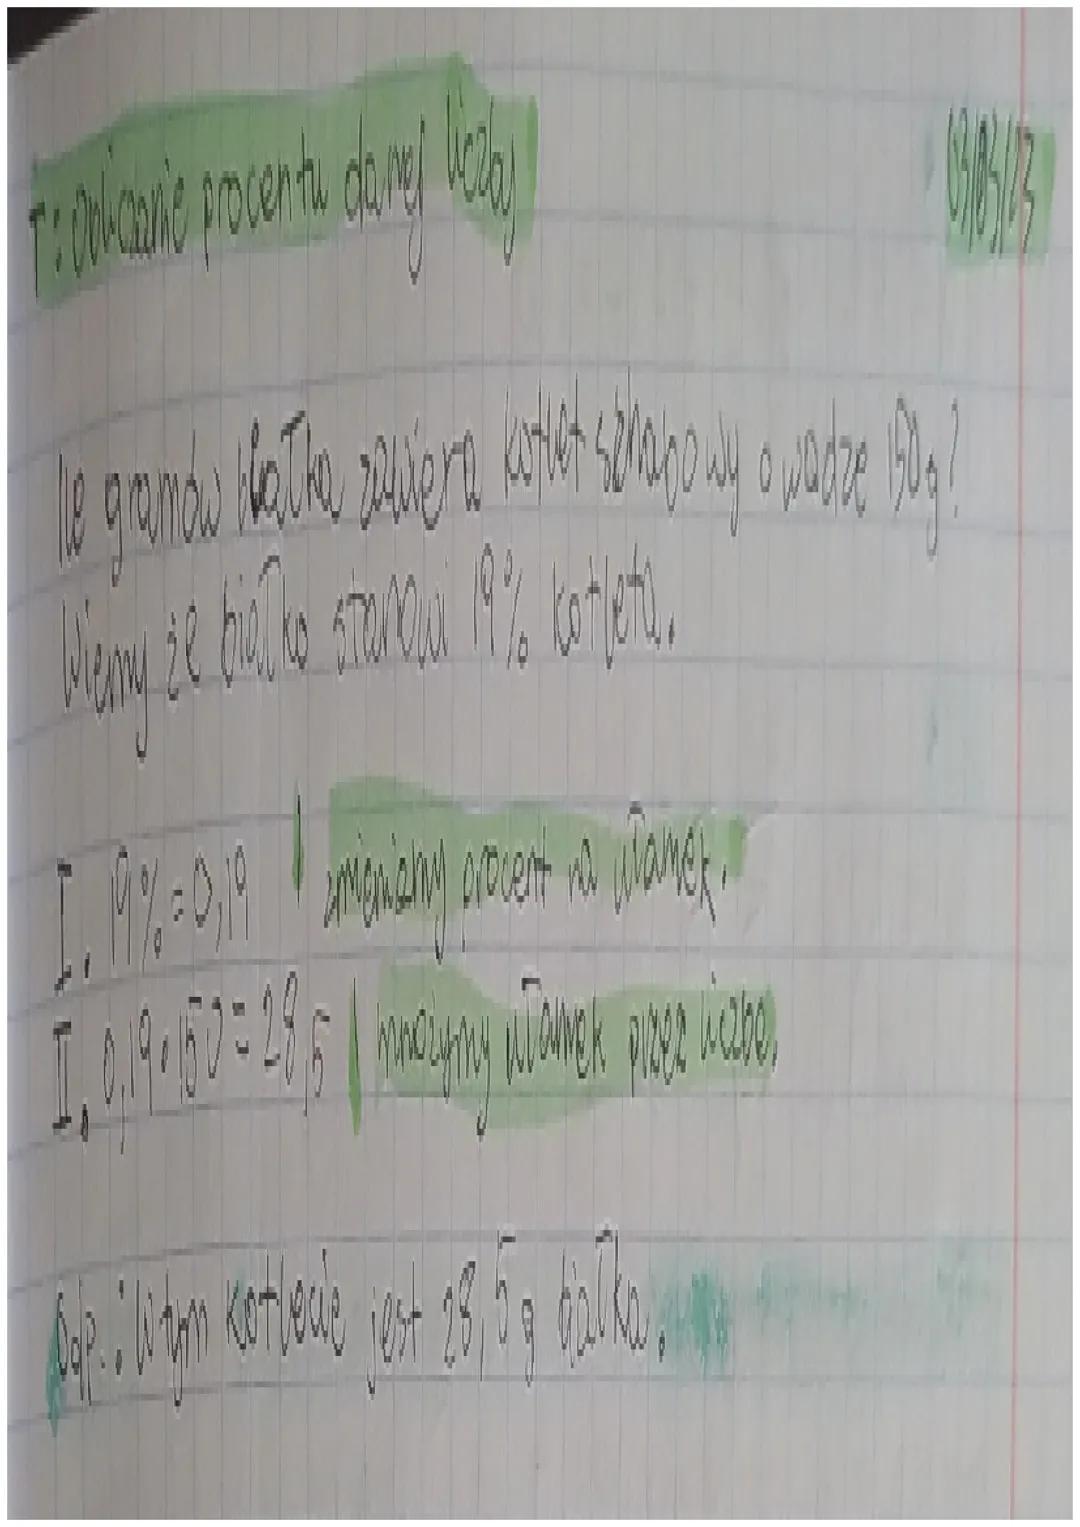 T: Obliczanie procentu danej liczby
Ile gramów białka zawiera kotlet schabowy o wadze 150g?
Wiemy że białko stanowi 19% kotleta.
I. 19% = 0,19 zmieniamy procent na ułamek.
II. 0,19 · 150 = 28,5 mnożymy ułamek przez liczbę.
Odp.: W tym kotlecie jest 28,5 g białka.